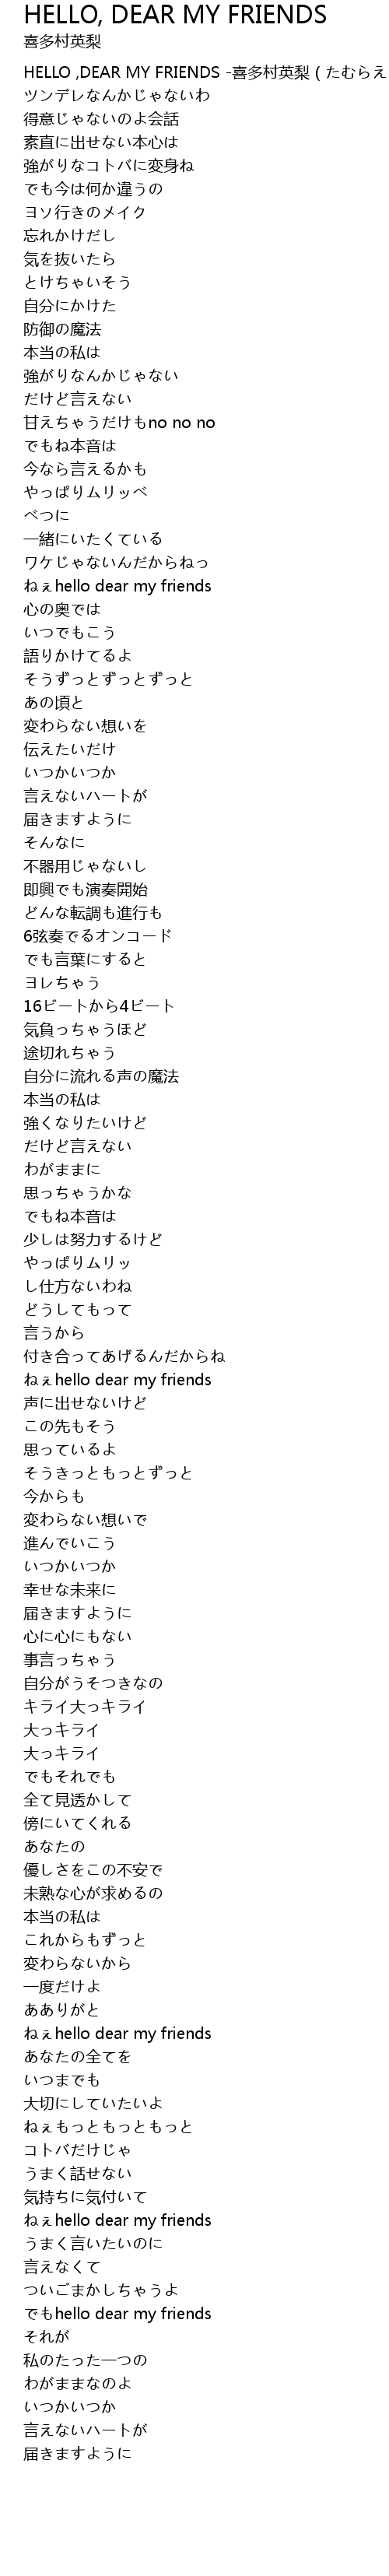 HELLO, DEAR MY FRIENDS
喜多村英梨
HELLO ,DEAR MY FRIENDS -喜多村英梨 ( たむらえ
ツンデレなんかじゃないわ
得意じゃないのよ会話
素直に出せない本心は
強がりなコトバに変身ね
でも今は何か違うの
ヨソ行きのメイク
忘れかけだし
気を抜いたら
とけちゃいそう
自分にかけた
防御の魔法
本当の私は
強がりなんかじゃない
だけど言えない
甘えちゃうだけもno no no
でもね本音は
今なら言えるかも
やっぱりムリッべ
べつに
一緒にいたくている
ワケじゃないんだからねっ
ねぇhello dear my friends
心の奥では
いつでもこう
語りかけてるよ
そうずっとずっとずっと
あの頃と
変わらない想いを
伝えたいだけ
いつかいつか
言えないハートが
届きますように
そんなに
不器用じゃないし
即興でも演奏開始
どんな転調も進行も
6弦奏でるオンコード
でも言葉にすると
ヨレちゃう
16ビートから4ビート
気負っちゃうほど
途切れちゃう
自分に流れる声の魔法
本当の私は
強くなりたいけど
だけど言えない
わがままに
思っちゃうかな
でもね本音は
少しは努力するけど
やっぱりムリッ
し仕方ないわね
どうしてもって
言うから
付き合ってあげるんだからね
ねぇhello dear my friends
声に出せないけど
この先もそう
思っているよ
そうきっともっとずっと
今からも
変わらない想いで
進んでいこう
いつかいつか
幸せな未来に
届きますように
心に心にもない
事言っちゃう
自分がうそつきなの
キライ大っキライ
大っキライ
大っキライ
でもそれでも
全て見透かして
傍にいてくれる
あなたの
優しさをこの不安で
未熟な心が求めるの
本当の私は
これからもずっと
変わらないから
一度だけよ
あありがと
ねぇhello dear my friends
あなたの全てを
いつまでも
大切にしていたいよ
ねぇもっともっともっと
コトバだけじゃ
うまく話せない
気持ちに気付いて
ねぇhello dear my friends
うまく言いたいのに
言えなくて
ついごまかしちゃうよ
でもhello dear my friends
それが
私のたった一つの
わがままなのよ
いつかいつか
言えないハートが
届きますように